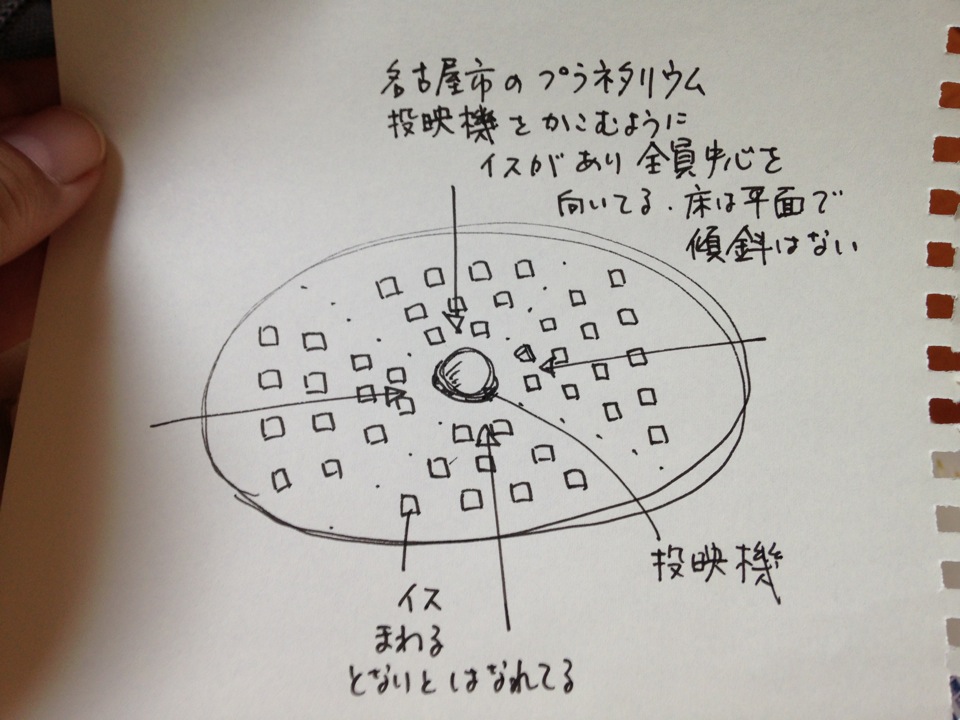 名古屋市のプラネタリウム
投映機をかこむように
イスがあり全員中心を
向いてる.床は平面で
傾斜はない
投映機
イス
まわる
となりとはなれてる